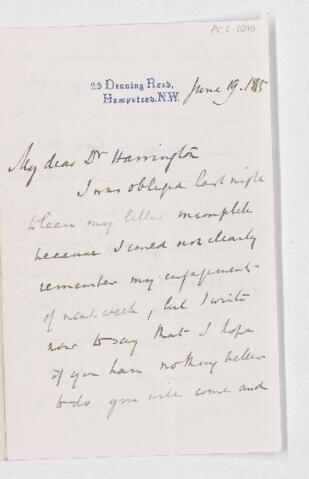 ACC-1010
23 Denning Road,
Hampstead. N.W.
June 19. 1885
My dear Dr Harrington
I was obliged last night
to leave my letter incomplete
because I could not clearly
remember my engagements
of next week, but I write
now to say that I hope
if you have nothing better
to do you will come and